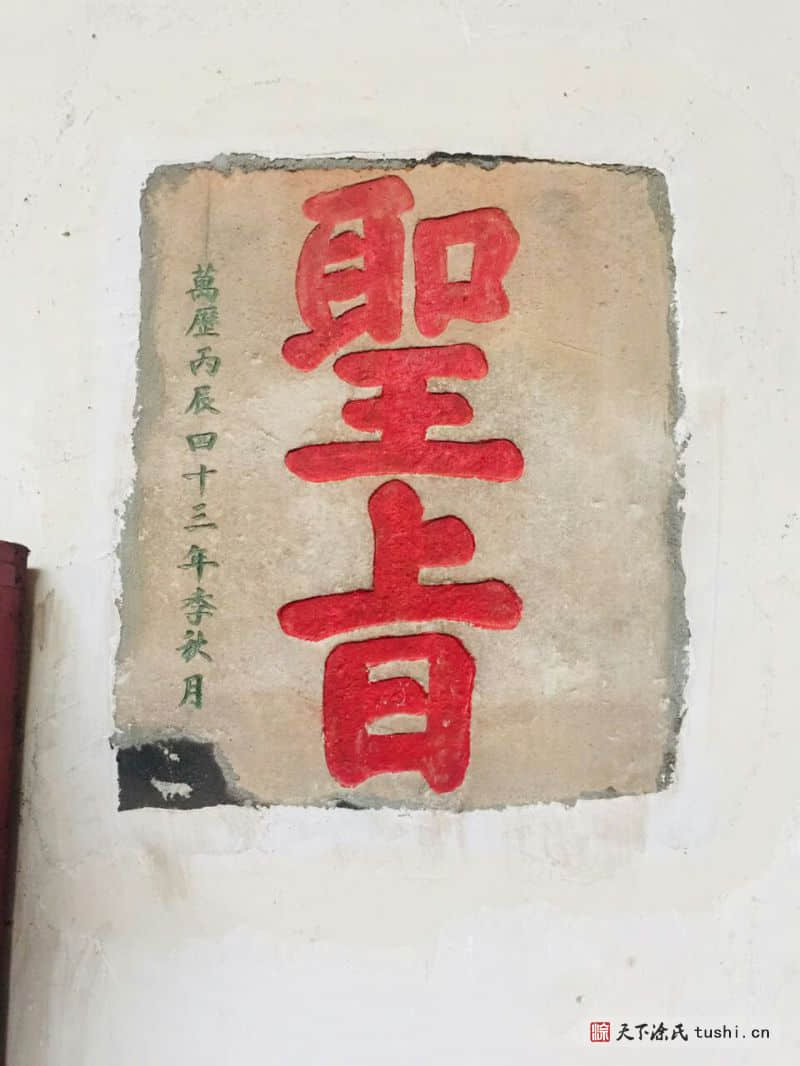 聖旨
萬歷丙辰四十三年季秋月
天下涂氏 tushi.cn